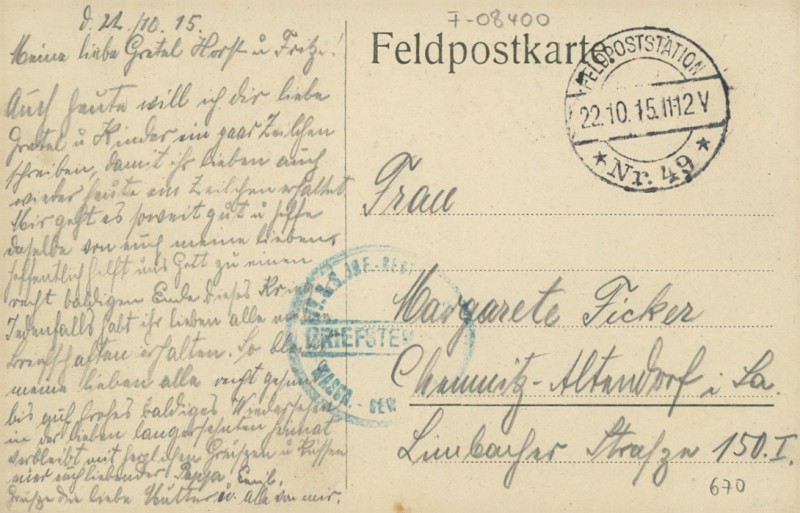 d. 21./10. 15.
Meine liebe Gretel Horst u Fritz!
Auch heute will ich dir liebe
Gretel u Kinder ein paar Zeilchen
schreiben, damit ihr lieben auch
wieder heute ein Zeilchen erhaltet
Mir geht es soweit gut u hoffe
daselbe von euch meine lieben,
hoffentlich hilft uns Gott zu einen
recht baldigen Ende dieses
Jedenfalls habt ihr lieben alle
Briefschaften erhalten. So
meine lieben alle recht gesund
bis auf frohes baldiges Wiedersehen
in der lieben langersehnten Heimat
verbleibt mit herzlichen Grüszen u Küssen
euer euch liebender Pappa Emil.
Grüsze die liebe Mutter u. alle von mir.
F-08400
Feldpostkarte
FELDPOSTSTATION
22.10.15.11-12V
* Nr. 49 *
INF.-REGT
BRIEFSTEMPEL
Frau
Margarete Ficker
Chemnitz-Altendorf i Sa.
Limbacher Strasze 150.I.
670